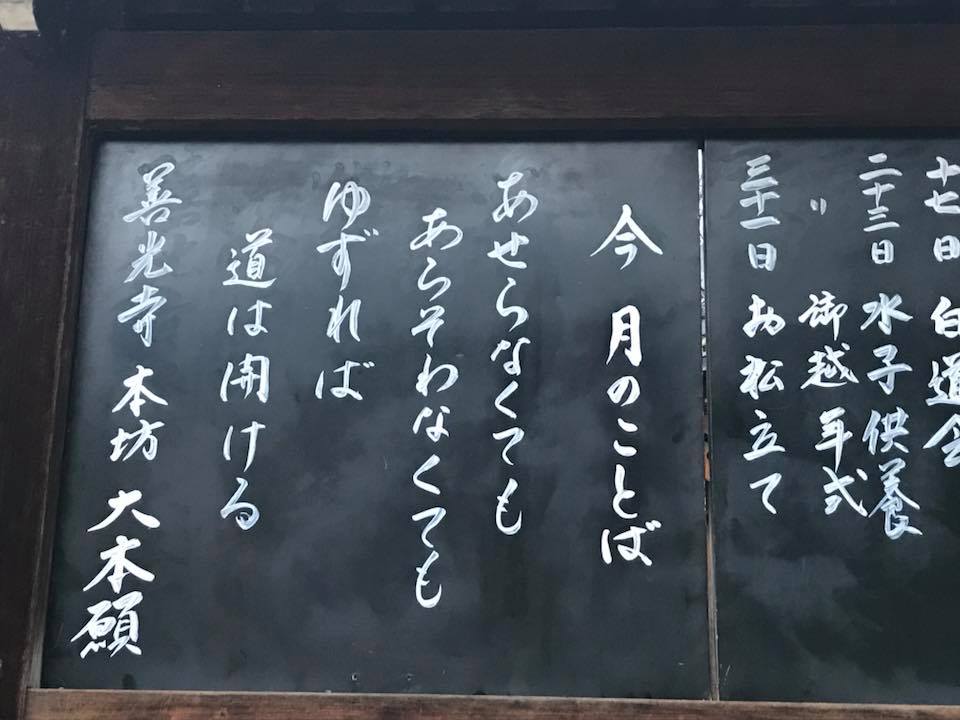 十七日 白道会
二十三日 水子供養
〃 御越年式
三十一日 お松立て
今月のことば
あせらなくても
あらそわなくても
ゆずれば
道は開ける
善光寺 本坊 大本願